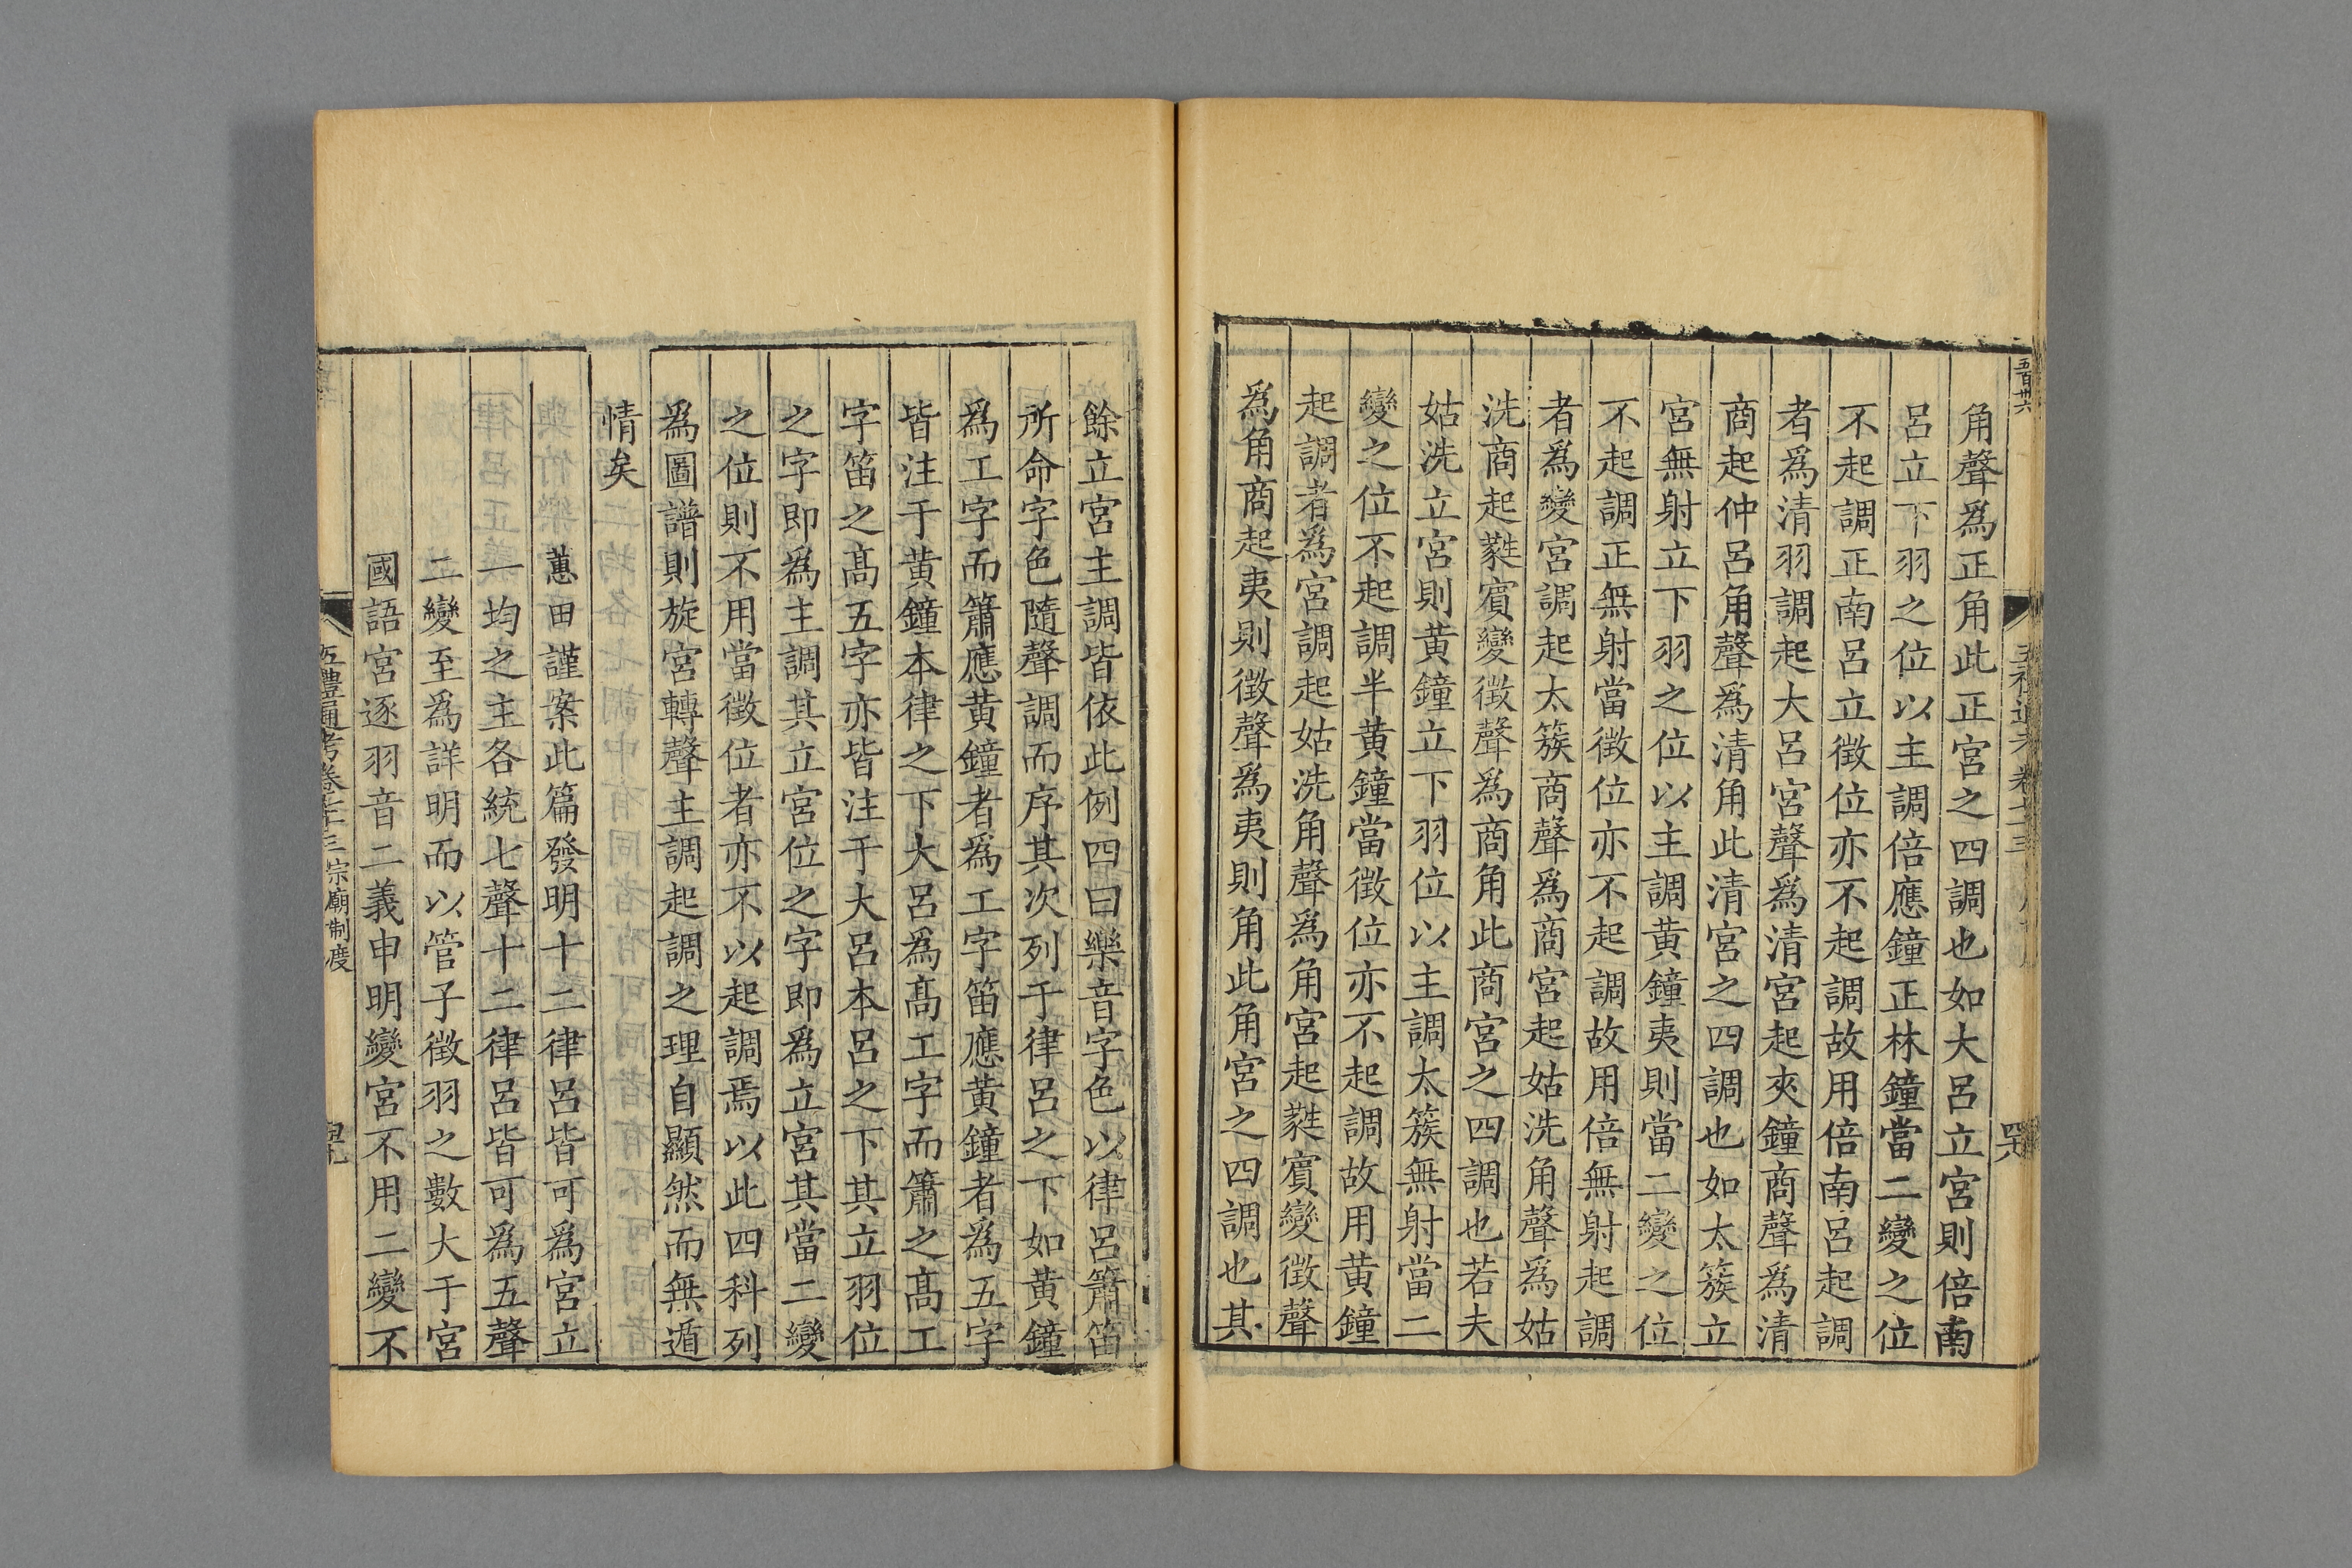 五百卅六
角聲爲正角此正宮之四調也如大呂立宮則倍南
呂立下羽之位以主調倍應鐘正林鐘當二變之位
不起調正南呂立徵位亦不起調故用倍南呂起調
者爲清羽調起大呂宮聲爲清宮起夾鐘商聲爲清
商起仲呂角聲爲清角此清宮之四調也如太簇立
宮無射立下羽之位以主調黃鐘夷則當二變之位
不起調正無射當徵位亦不起調故用倍無射起調
者爲變宮調起太簇商聲爲商宮起姑洗角聲爲姑
洗商起蕤賓變徵聲爲商角此商宮之四調也若夫
姑洗立宮則黃鐘立下羽位以主調太簇無射當二
變之位不起調半黃鐘當徵位亦不起調故用黃鐘
起調者爲宮調起姑洗角聲爲角宮起蕤賓變徵聲
爲角商起夷則徵聲爲夷則角此角宮之四調也其
餘立宮主調皆依此例四曰樂音字色以律呂簫笛
所命字色隨聲調而序其次列于律呂之下如黃鐘
爲工字而簫應黃鐘者爲工字笛應黃鐘者爲五字
皆注于黃鐘本律之下大呂爲髙工字而簫之髙工
字笛之髙五字亦皆注于大呂本呂之下其立羽位
之字即爲主調其立宮位之字即爲立宮其當二變
之位則不用當徵位者亦不以起調焉以此四科列
爲圖譜則旋宮轉聲主調起調之理自顯然而無遁
情矣
蕙田謹案此篇發明十二律呂皆可爲宮立
一均之主各統七聲十二律呂皆可爲五聲
二變至爲詳明而以管子徵羽之數大于宮
國語宮逐羽音二義申明變宮不用二變不
五禮通考卷七十三 宗廟制度